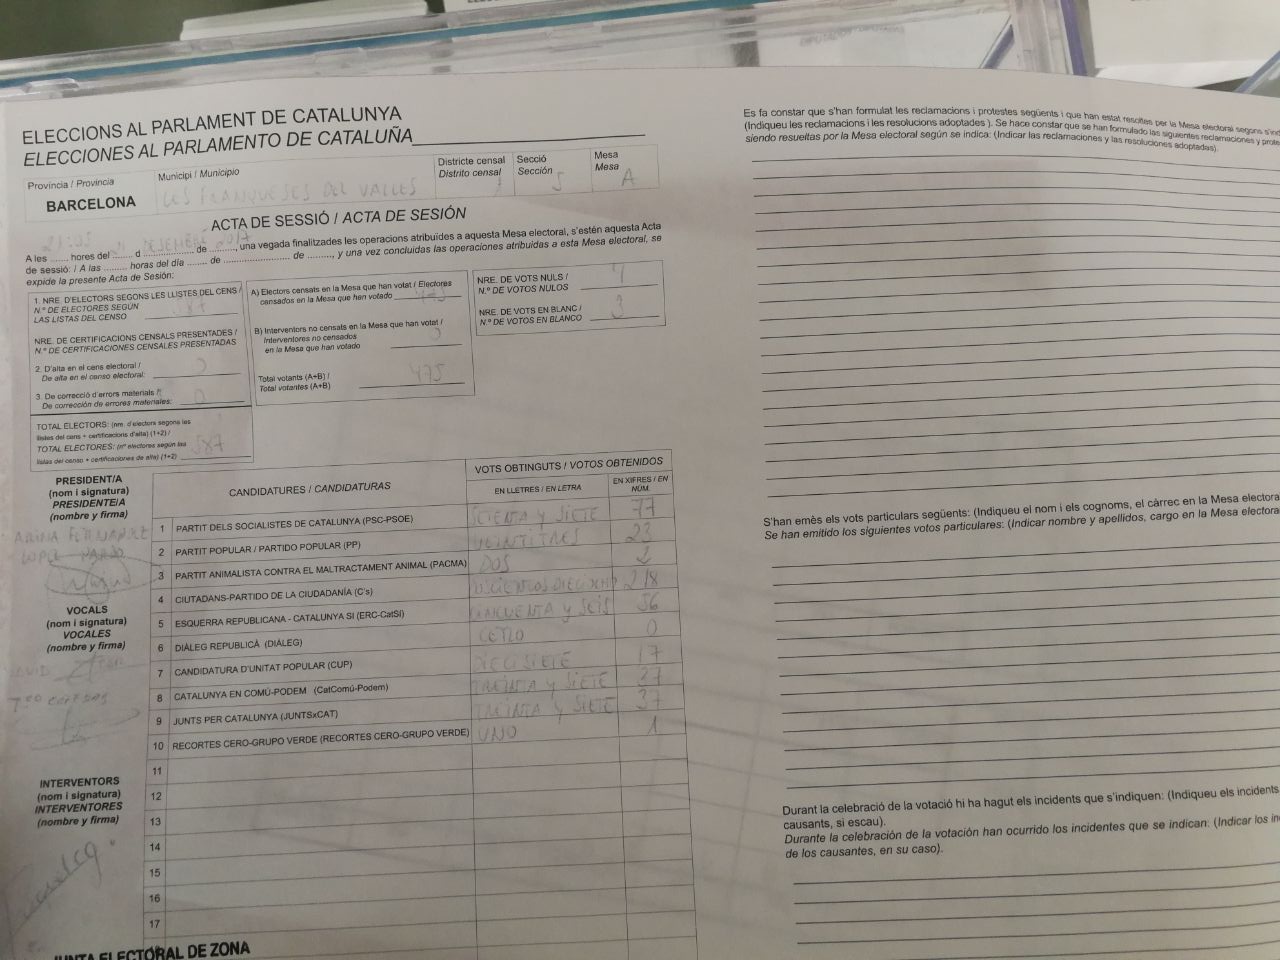 ELECCIONS AL PARLAMENT DE CATALUNYA
ELECCIONES AL PARLAMENTO DE CATALUÑA
Provincia / Provincia
BARCELONA
Municipi / Municipio
LES FRANQUESES DEL VALLES
Districte censal
Distrito censal
Secció
Sección
5
Mesa
Mesa
A
ACTA DE SESSIÓ / ACTA DE SESIÓN
21:05 DESEMBRE 2017
A les ....... hores del ....... d ....................... de ........, una vegada finalitzades les operacions atribuïdes a aquesta Mesa electoral, s'estén aquesta Acta
de sessió: / A las ......... horas del día ....... de ........................ de ........, y una vez concluidas las operaciones atribuidas a esta Mesa electoral, se
expide la presente Acta de Sesión:
1. NRE. D'ELECTORS SEGONS LES LLISTES DEL CENS /
N.º DE ELECTORES SEGÚN
LAS LISTAS DEL CENSO
NRE. DE CERTIFICACIONS CENSALS PRESENTADES /
N.º DE CERTIFICACIONES CENSALES PRESENTADAS
2. D'alta en el cens electoral /
De alta en el censo electoral:
3. De correcció d'errors materials /
De corrección de errores materiales: 0
TOTAL ELECTORS: (nre. d'electors segons les
llistes del cens + certificacions d'alta) (1+2) /
TOTAL ELECTORES: (nº electores según las
listas del censo + certificaciones de alta) (1+2) 587
A) Electors censats en la Mesa que han votat / Electores
censados en la Mesa que han votado 475
B) Interventors no censats en la Mesa que han votat /
Interventores no censados
en la Mesa que han votado 0
Total votants (A+B) /
Total votantes (A+B) 475
NRE. DE VOTS NULS /
N.º DE VOTOS NULOS
NRE. DE VOTS EN BLANC /
N.º DE VOTOS EN BLANCO 3
PRESIDENT/A
(nom i signatura)
PRESIDENTE/A
(nombre y firma)
VOCALS
(nom i signatura)
VOCALES
(nombre y firma)
INTERVENTORS
(nom i signatura)
INTERVENTORES
(nombre y firma)
CANDIDATURES / CANDIDATURAS
VOTS OBTINGUTS / VOTOS OBTENIDOS
EN LLETRES / EN LETRA
EN XIFRES / EN NÚM.
1 PARTIT DELS SOCIALISTES DE CATALUNYA (PSC-PSOE) SETENTA Y SIETE 77
2 PARTIT POPULAR / PARTIDO POPULAR (PP) VEINTITRES 23
3 PARTIT ANIMALISTA CONTRA EL MALTRACTAMENT ANIMAL (PACMA) DOS 2
4 CIUTADANS-PARTIDO DE LA CIUDADANÍA (C's) 218
5 ESQUERRA REPUBLICANA - CATALUNYA SÍ (ERC-CatSí) CINCUENTA Y SEIS 56
6 DIÀLEG REPUBLICÀ (DIÀLEG) CERO 0
7 CANDIDATURA D'UNITAT POPULAR (CUP) DIECISIETE 17
8 CATALUNYA EN COMÚ-PODEM (CatComú-Podem) TREINTA Y SIETE 37
9 JUNTS PER CATALUNYA (JUNTSxCAT) TREINTA Y SIETE 37
10 RECORTES CERO-GRUPO VERDE (RECORTES CERO-GRUPO VERDE) UNO 1
11
12
13
14
15
16
17
JUNTA ELECTORAL DE ZONA
Es fa constar que s'han formulat les reclamacions i protestes següents i que han estat resoltes per la Mesa electoral segons s'indi
(Indiqueu les reclamacions i les resolucions adoptades ). Se hace constar que se han formulado las siguientes reclamaciones y prote
siendo resueltas por la Mesa electoral según se indica: (Indicar las reclamaciones y las resoluciones adoptadas).
S'han emès els vots particulars següents: (Indiqueu el nom i els cognoms, el càrrec en la Mesa electora
Se han emitido los siguientes votos particulares: (Indicar nombre y apellidos, cargo en la Mesa electora
Durant la celebració de la votació hi ha hagut els incidents que s'indiquen: (Indiqueu els incidents
causants, si escau).
Durante la celebración de la votación han ocurrido los incidentes que se indican: (Indicar los in
de los causantes, en su caso).